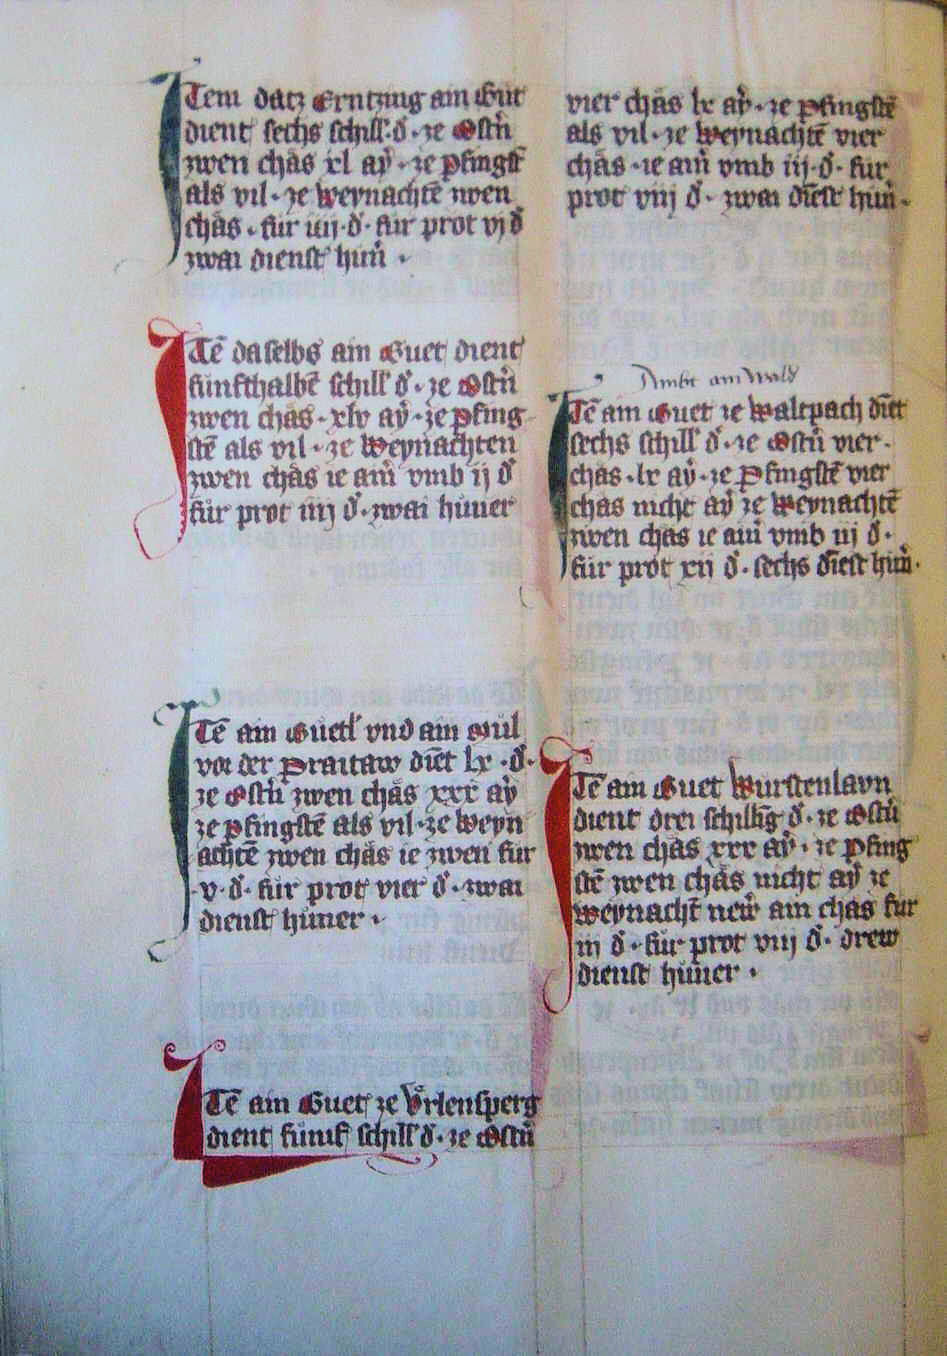 Item datz Erntzing ain Güt
dient sechs schill. d. ze Ostn̄
zwen chäs xl aÿ. ze Pfingst̄
als vil. ze Weynachtē zwen
chäs. für iiij. d. für prot vj d
zwai dienst hün̄.
Itē daselbs ain Guet dient
fünfthalbē schill d. ze Ostn̄
zwen chäs. xlv aÿ. ze Pfing-
stē als vil. ze Weynachten
zwen chäs ie ain̄ vmb ij d
für prot iiij d. zwai hüner
Itē ain Güetl vnd ain Mül
vor der Praitaw diēt lx. d.
ze Ostn̄ zwen chäs xxx aÿ
ze Pfingstē als vil. ze Weyn
achtē zwen chäs ie zwen für
.v. d. für prot vier d. zwai
dienst hüner.
Itē ain Guet ze Vrlensperg
dient fümf schill d. ze Ostn̄
vier chäs lx aÿ. ze Pfingstē
als vil. ze Weynachtē vier
chäs. ie ain̄ vmb iij. d. für
prot viij d. zwai diēst hün̄.
Ambt am Wald
Itē ain Guet ze Waltpach diēt
sechs schill d. ze Ostn̄ vier.
chäs. lx aÿ. ze Pfingstē vier
chäs nicht aÿ ze Weynachtē
zwen chäs ie ain̄ vmb iij d.
für prot xij d. sechs diēst hün̄.
Itē ain Guet Würstenlayn
dient drei schilling d. ze Ostn̄
zwen chäs xxx aÿ. ze Pfing
stē zwen chäs nicht aÿ ze
Weynacht̄ newr ain chäs für
iij d. für prot viij d. drew
dienst hüner.